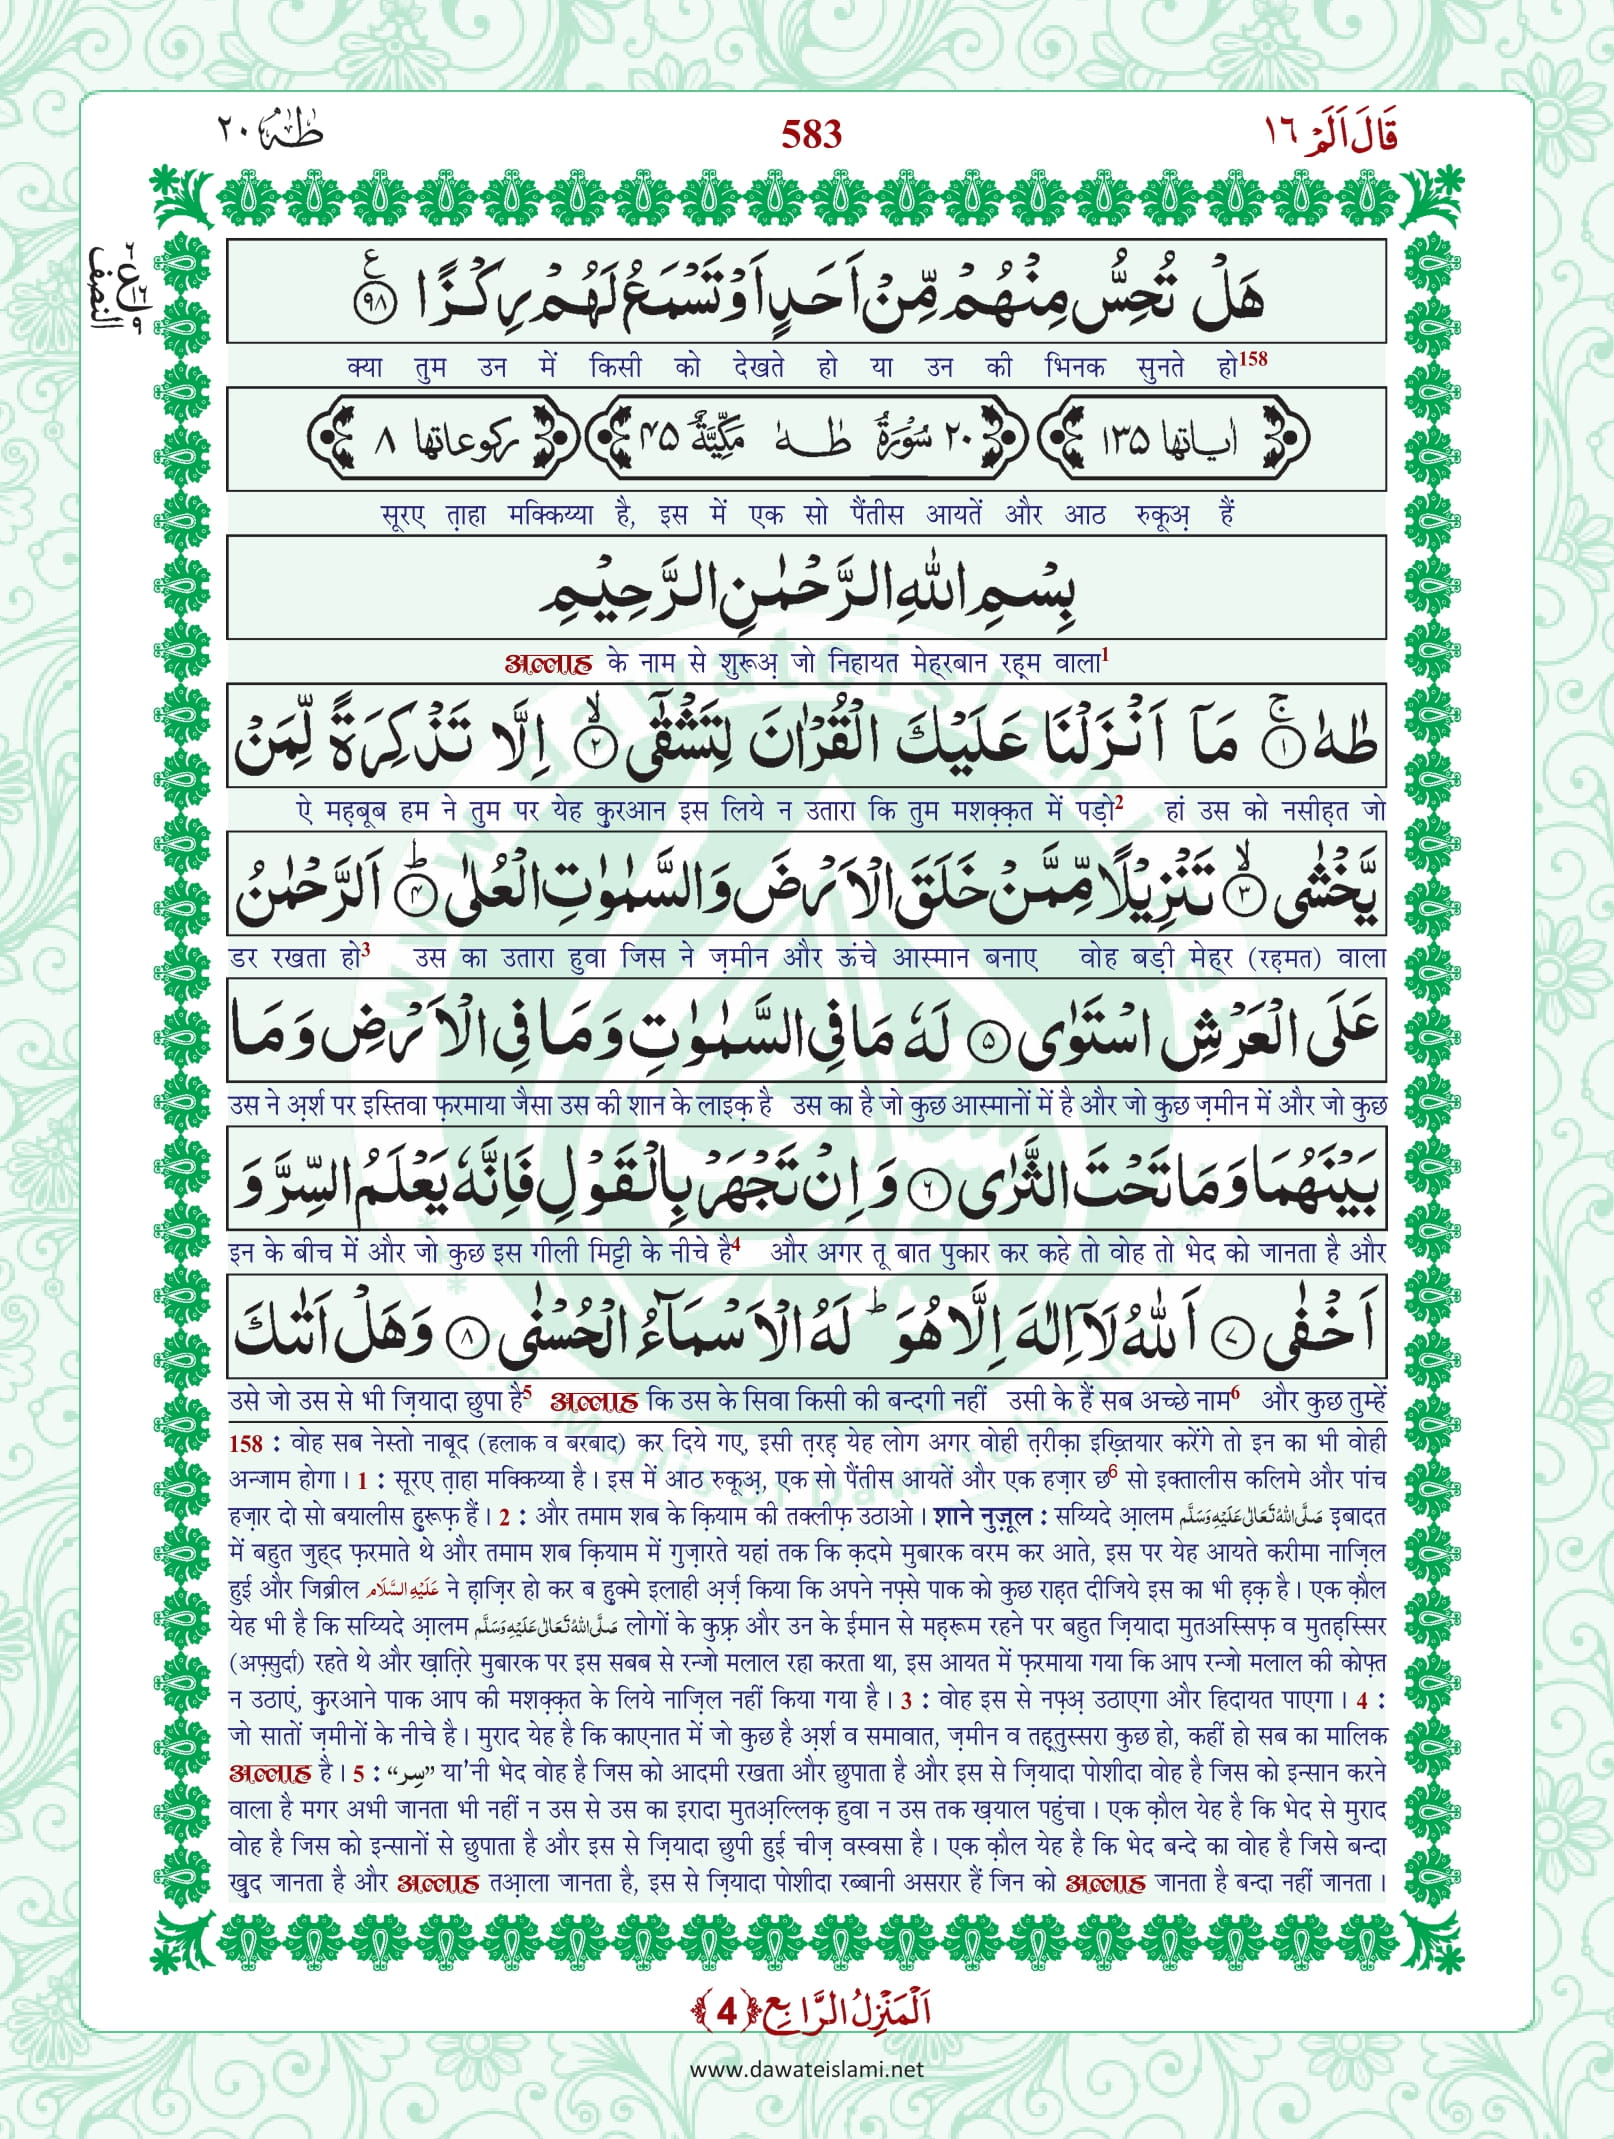 طٰهٰ ٢٠
583
قَالَ اَلَمْ ١٦
النصف
ع
١٦
٩
هَلْ تُحِسُّ مِنْهُمْ مِّنْ اَحَدٍ اَوْ تَسْمَعُ لَهُمْ رِكْزًا ﴿٩٨﴾ ع
क्या तुम उन में किसी को देखते हो या उन की भिनक सुनते हो158
اٰیاتها ١٣٥ ٢٠ سُوْرَةُ طٰهٰ مَكِّيَّةٌ ٤٥ رکوعاتها ٨
सूरए त़ाहा मक्किय्या है, इस में एक सो पैंतीस आयतें और आठ रुकूअ़ हैं
بِسْمِ اللّٰهِ الرَّحْمٰنِ الرَّحِيْمِ
अल्लाह के नाम से शुरूअ़ जो निहायत मेह्‌रबान रह़्म वाला1
طٰهٰ ﴿١﴾ۚ مَآ اَنْزَلْنَا عَلَيْكَ الْقُرْاٰنَ لِتَشْقٰٓى ﴿٢﴾ۙ اِلَّا تَذْكِرَةً لِّمَنْ
ऐ मह़बूब हम ने तुम पर येह क़ुरआन इस लिये न उतारा कि तुम मशक़्क़त में पड़ो2 हां उस को नसीह़त जो
يَّخْشٰى ﴿٣﴾ۙ تَنْزِيْلًا مِّمَّنْ خَلَقَ الْاَرْضَ وَالسَّمٰوٰتِ الْعُلٰى ﴿٤﴾ؕ اَلرَّحْمٰنُ
डर रखता हो3 उस का उतारा हुवा जिस ने ज़मीन और ऊंचे आस्मान बनाए वोह बड़ी मेह्‌र (रह़मत) वाला
عَلَى الْعَرْشِ اسْتَوٰى ﴿٥﴾ لَهٗ مَا فِى السَّمٰوٰتِ وَمَا فِى الْاَرْضِ وَمَا
उस ने अ़र्श पर इस्तिवा फ़रमाया जैसा उस की शान के लाइक़ है उस का है जो कुछ आस्मानों में है और जो कुछ ज़मीन में और जो कुछ
بَيْنَهُمَا وَمَا تَحْتَ الثَّرٰى ﴿٦﴾ وَ اِنْ تَجْهَرْ بِالْقَوْلِ فَاِنَّهٗ يَعْلَمُ السِّرَّ وَ
इन के बीच में और जो कुछ इस गीली मिट्टी के नीचे है4 और अगर तू बात पुकार कर कहे तो वोह तो भेद को जानता है और
اَخْفٰى ﴿٧﴾ اَللّٰهُ لَآ اِلٰهَ اِلَّا هُوَ ؕ لَهُ الْاَسْمَآءُ الْحُسْنٰى ﴿٨﴾ وَهَلْ اَتٰىكَ
उसे जो उस से भी ज़ियादा छुपा है5 अल्लाह कि उस के सिवा किसी की बन्दगी नहीं उसी के हैं सब अच्छे नाम6 और कुछ तुम्हें
158 : वोह सब नेस्तो नाबूद (हलाक व बरबाद) कर दिये गए, इसी त़रह़ येह लोग अगर वोही त़रीक़ा इख़्तियार करेंगे तो इन का भी वोही
अन्जाम होगा। 1 : सूरए त़ाहा मक्किय्या है। इस में आठ रुकूअ़, एक सो पैंतीस आयतें और एक हज़ार छ6 सो इक्तालीस कलिमे और पांच
हज़ार दो सो बयालीस हुरूफ़ हैं। 2 : और तमाम शब के क़ियाम की तक्लीफ़ उठाओ। शाने नुज़ूल : सय्यिदे आ़लम صَلَّى اللّٰهُ تَعَالٰى عَلَيْهِ وَسَلَّم इ़बादत
में बहुत जुह्द फ़रमाते थे और तमाम शब क़ियाम में गुज़ारते यहां तक कि क़दमे मुबारक वरम कर आते, इस पर येह आयते करीमा नाज़िल
हुई और जिब्रील عَلَيْهِ السَّلَام ने ह़ाज़िर हो कर ब हुक्मे इलाही अ़र्ज़ किया कि अपने नफ़्से पाक को कुछ राह़त दीजिये इस का भी ह़क़ है। एक क़ौल
येह भी है कि सय्यिदे आ़लम صَلَّى اللّٰهُ تَعَالٰى عَلَيْهِ وَسَلَّم लोगों के कुफ़्र और उन के ईमान से मह़रूम रहने पर बहुत ज़ियादा मुतअस्सिफ़ व मुतह़स्सिर
(अफ़्सुर्दा) रहते थे और ख़ात़िरे मुबारक पर इस सबब से रन्जो मलाल रहा करता था, इस आयत में फ़रमाया गया कि आप रन्जो मलाल की कोफ़्त
न उठाएं, क़ुरआने पाक आप की मशक़्क़त के लिये नाज़िल नहीं किया गया है। 3 : वोह इस से नफ़्अ़ उठाएगा और हिदायत पाएगा। 4 :
जो सातों ज़मीनों के नीचे है। मुराद येह है कि काएनात में जो कुछ है अ़र्श व समावात, ज़मीन व तह़्तुस्सरा कुछ हो, कहीं हो सब का मालिक
अल्लाह है। 5 : “سِر” या'नी भेद वोह है जिस को आदमी रखता और छुपाता है और इस से ज़ियादा पोशीदा वोह है जिस को इन्सान करने
वाला है मगर अभी जानता भी नहीं न उस से उस का इरादा मुतअ़ल्लिक़ हुवा न उस तक ख़याल पहुंचा। एक क़ौल येह है कि भेद से मुराद
वोह है जिस को इन्सानों से छुपाता है और इस से ज़ियादा छुपी हुई चीज़ वस्वसा है। एक क़ौल येह है कि भेद बन्दे का वोह है जिसे बन्दा
ख़ुद जानता है और अल्लाह तआ़ला जानता है, इस से ज़ियादा पोशीदा रब्बानी असरार हैं जिन को अल्लाह जानता है बन्दा नहीं जानता।
اَلْمَنْزِلُ الرَّابِع ﴿4﴾
www.dawateislami.net